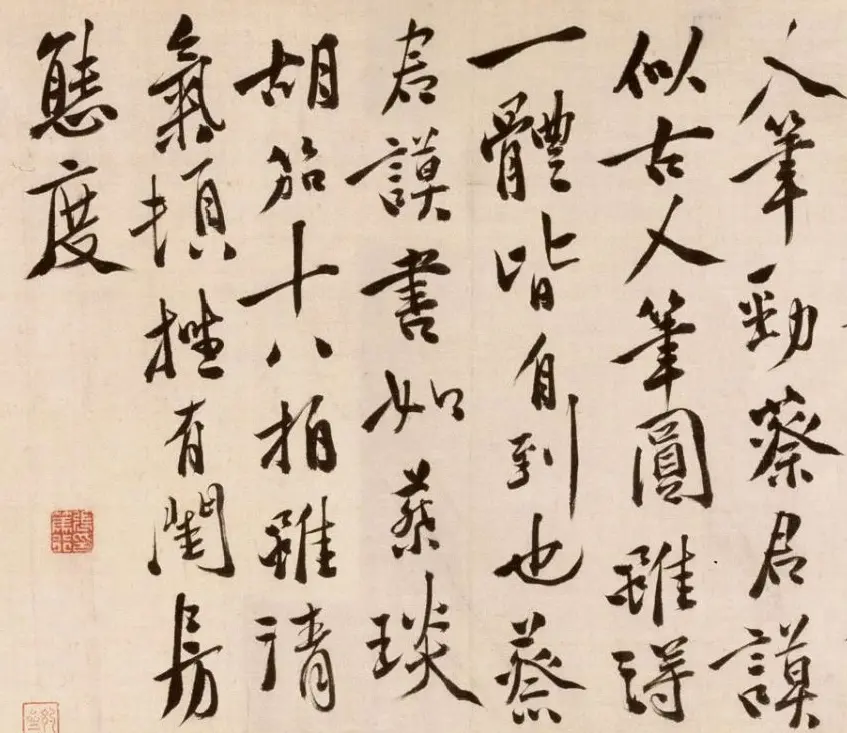 人筆勁蔡君謨
似古人筆圓雖得
一體皆自到也蔡
君謨書如蔡琰
胡笳十八拍雖清
氣頓挫有閨房
態度